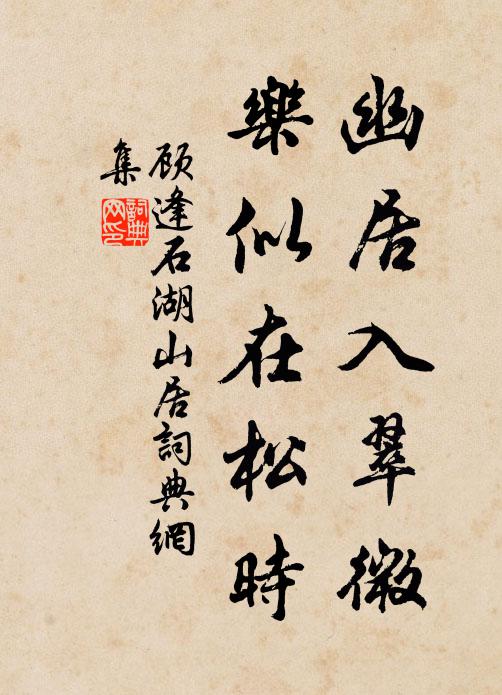 幽居入翠微
樂似在松時
顾逢石湖山居詞典網
集
詞典網印